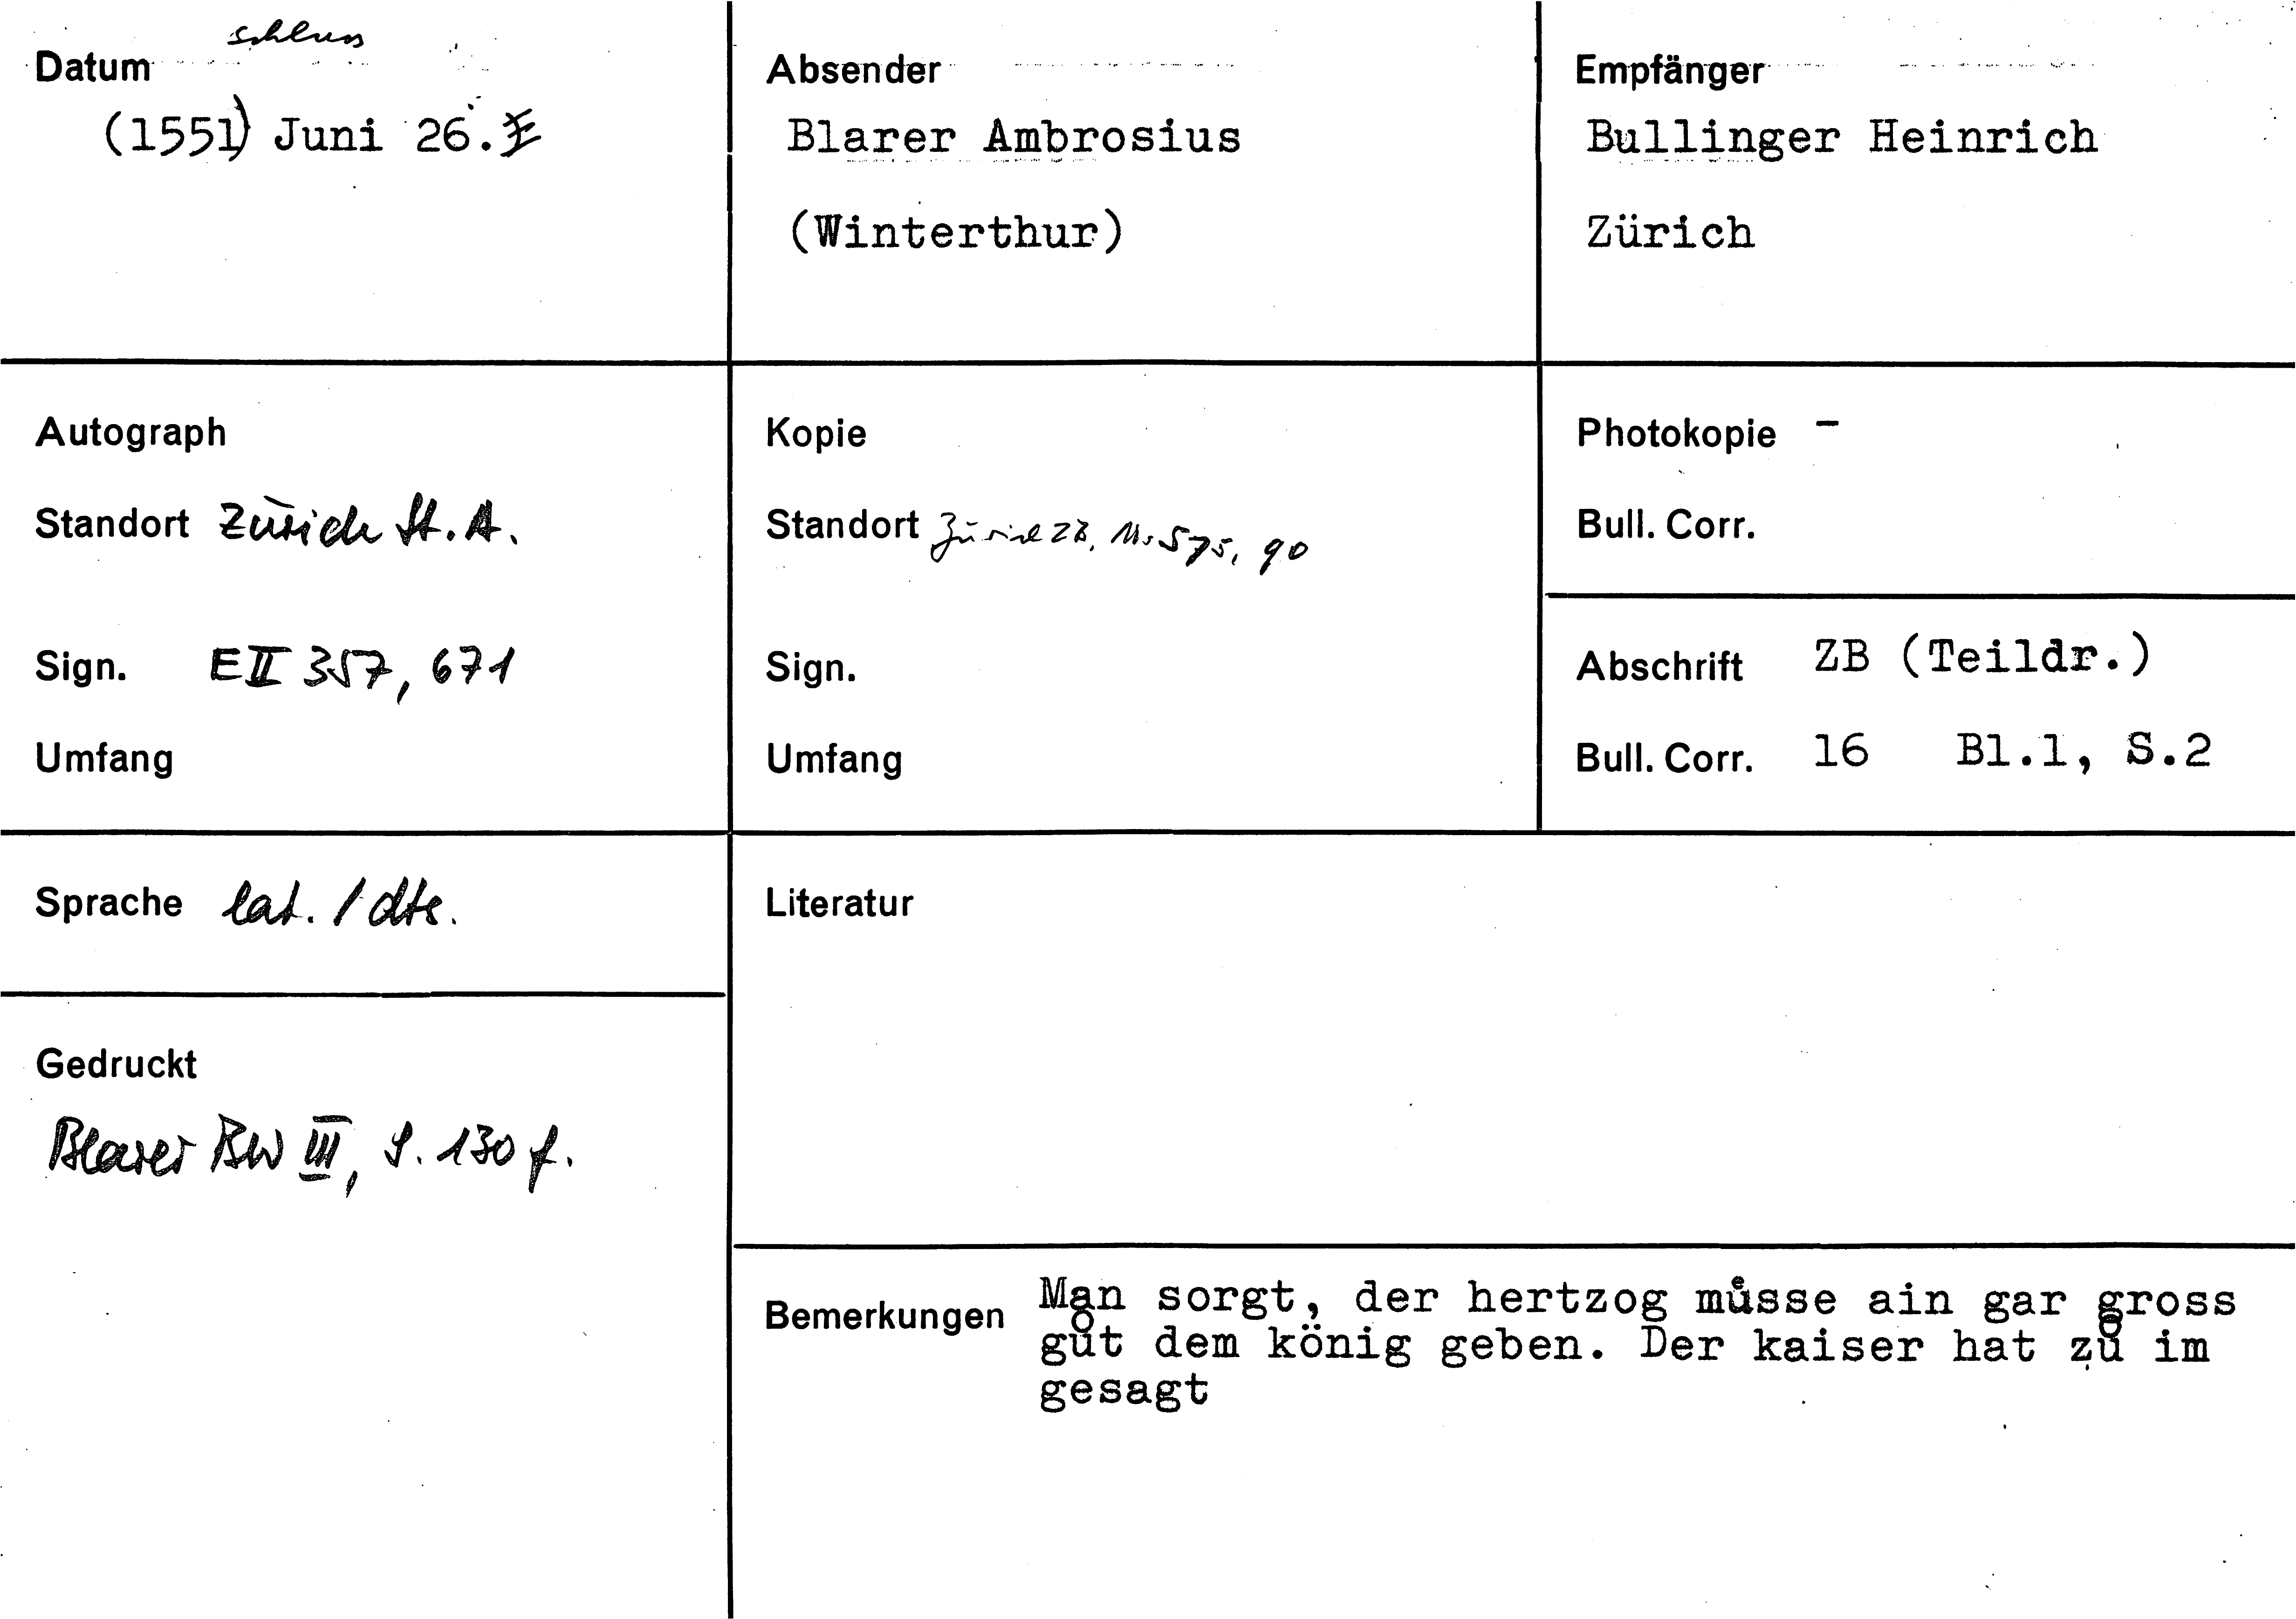 schluss
Datum
(1551) Juni 26.
Absender
Blarer Ambrosius
(Winterthur)
Empfänger
Bullinger Heinrich
Zürich
Autograph
Standort Zürich St. A.
Sign. E II 357, 671
Umfang
Kopie
Standort Zürich ZB, Ms S 75, 90
Sign.
Umfang
Photokopie -
Bull. Corr.
Abschrift ZB (Teildr.)
Bull. Corr. 16 Bl.1, S.2
Sprache lat. / dte.
Gedruckt
Blarer BW III, S. 130 f.
Literatur
Bemerkungen Man sorgt, der hertzog muͤsse ain gar gross
gůt dem könig geben. Der kaiser hat zů im
gesagt